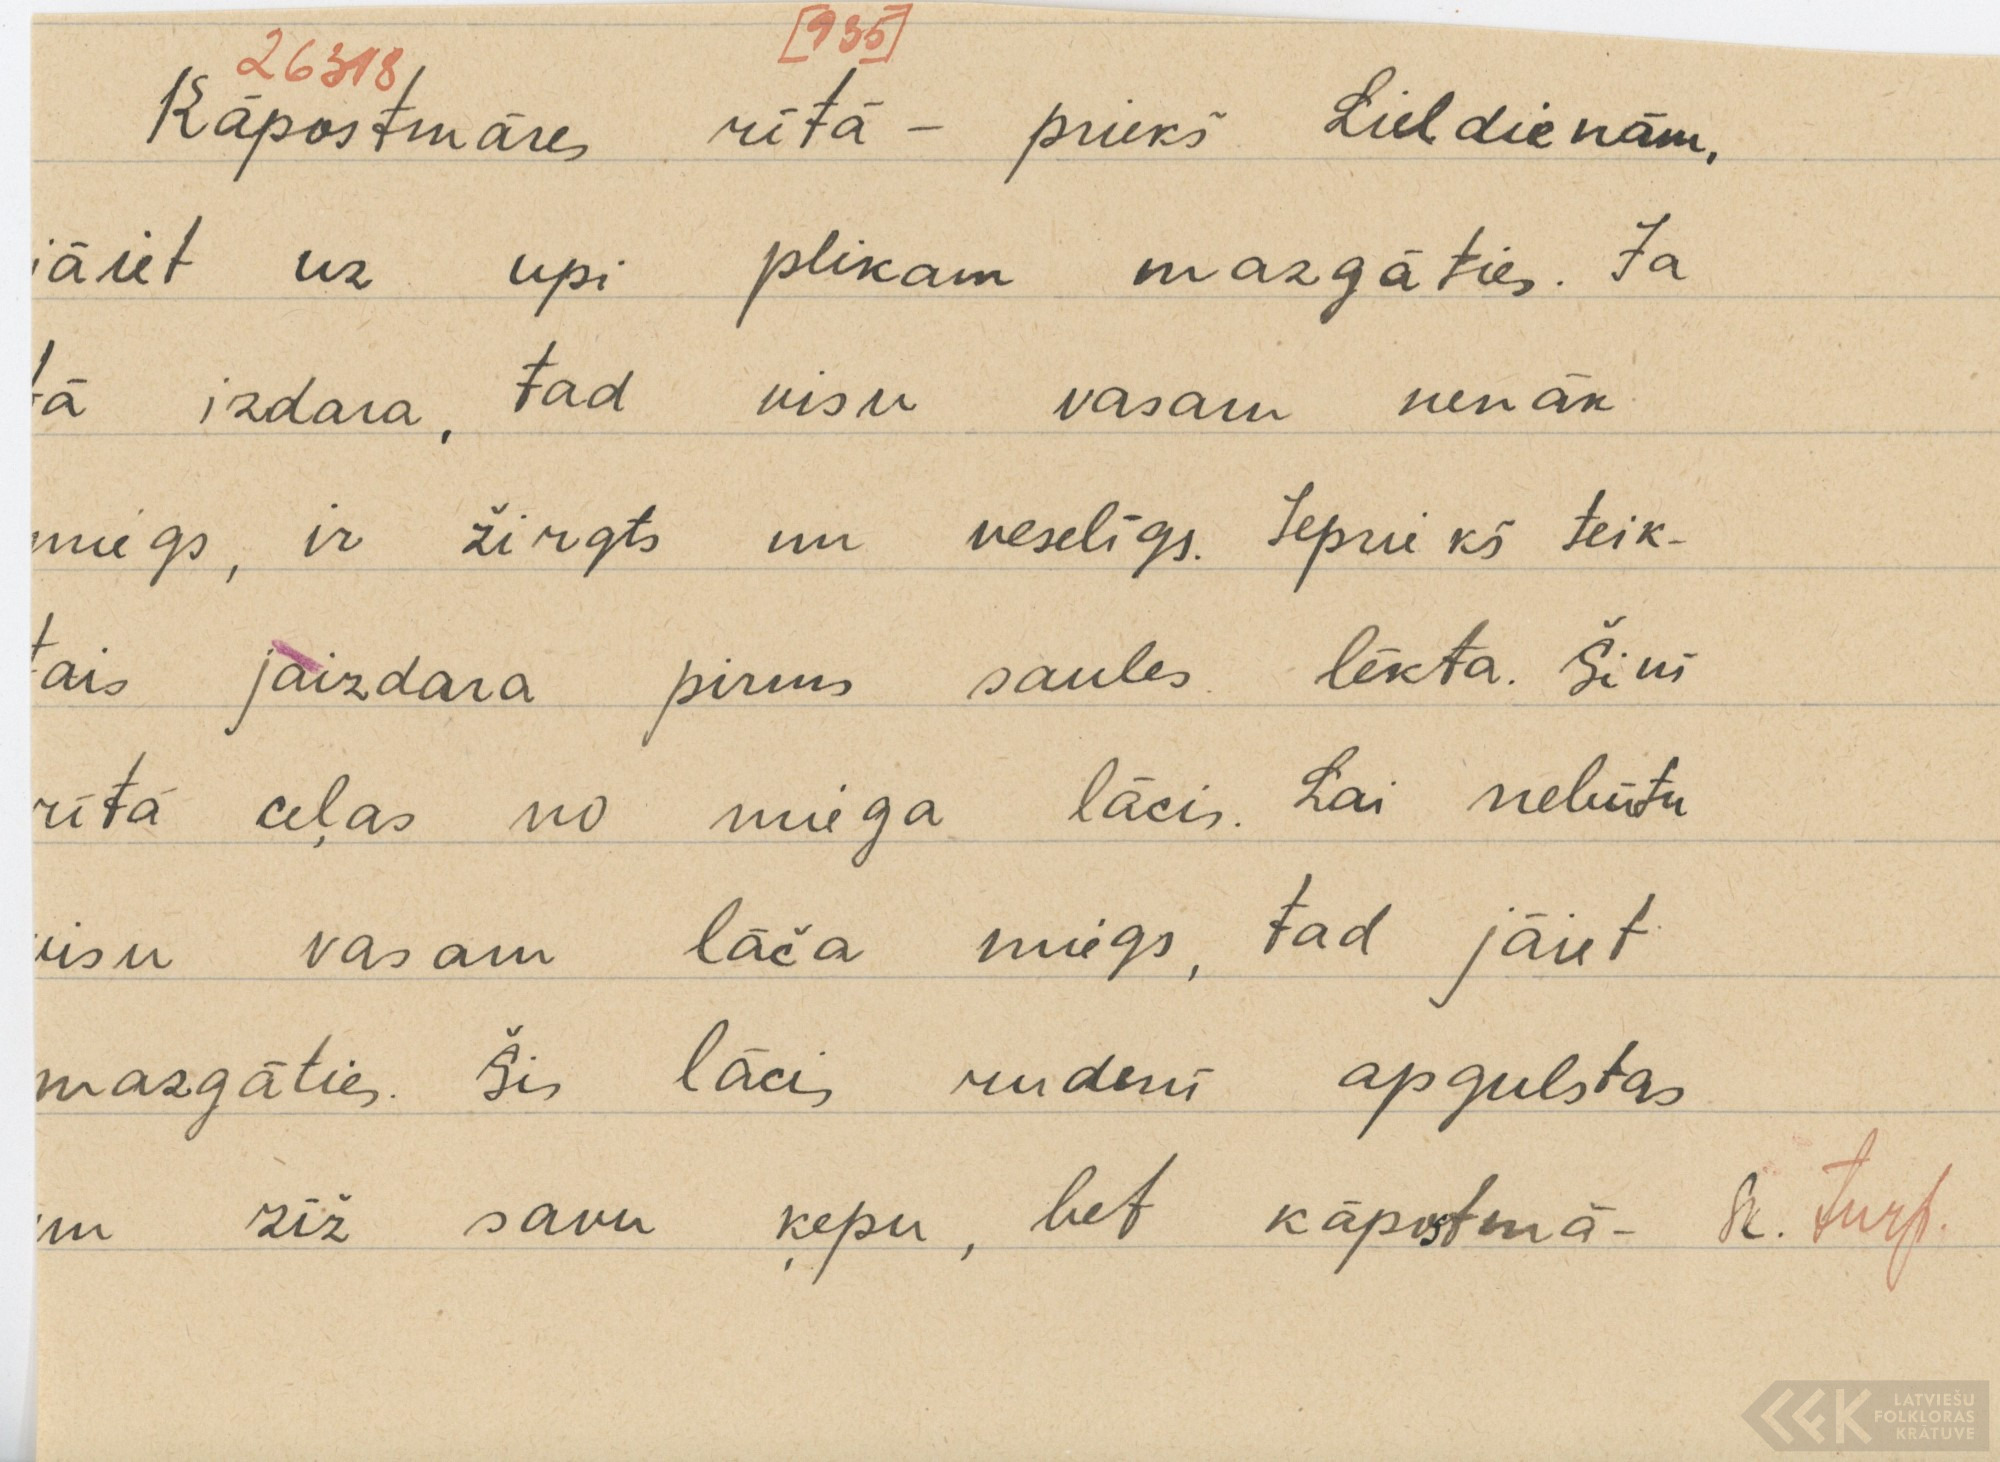 26318 [935]
Kāpostmāres rītā – priekš Lieldienām,
jāiet uz upi plikam mazgāties. Ja
tā izdara, tad visu vasaru nenāk
miegs, ir žirgts un veselīgs. Iepriekš teik-
tais jāizdara pirms saules lēkta. Šinī
rītā ceļas no miega lācis. Lai nebūtu
visu vasaru lāča miegs, tad jāiet
mazgāties. Šis lācis rudenī apgulstas
un zīž savu ķepu, bet kāpostmā- sk. turp.
LATVIEŠU
FOLKLORAS
KRĀTUVE